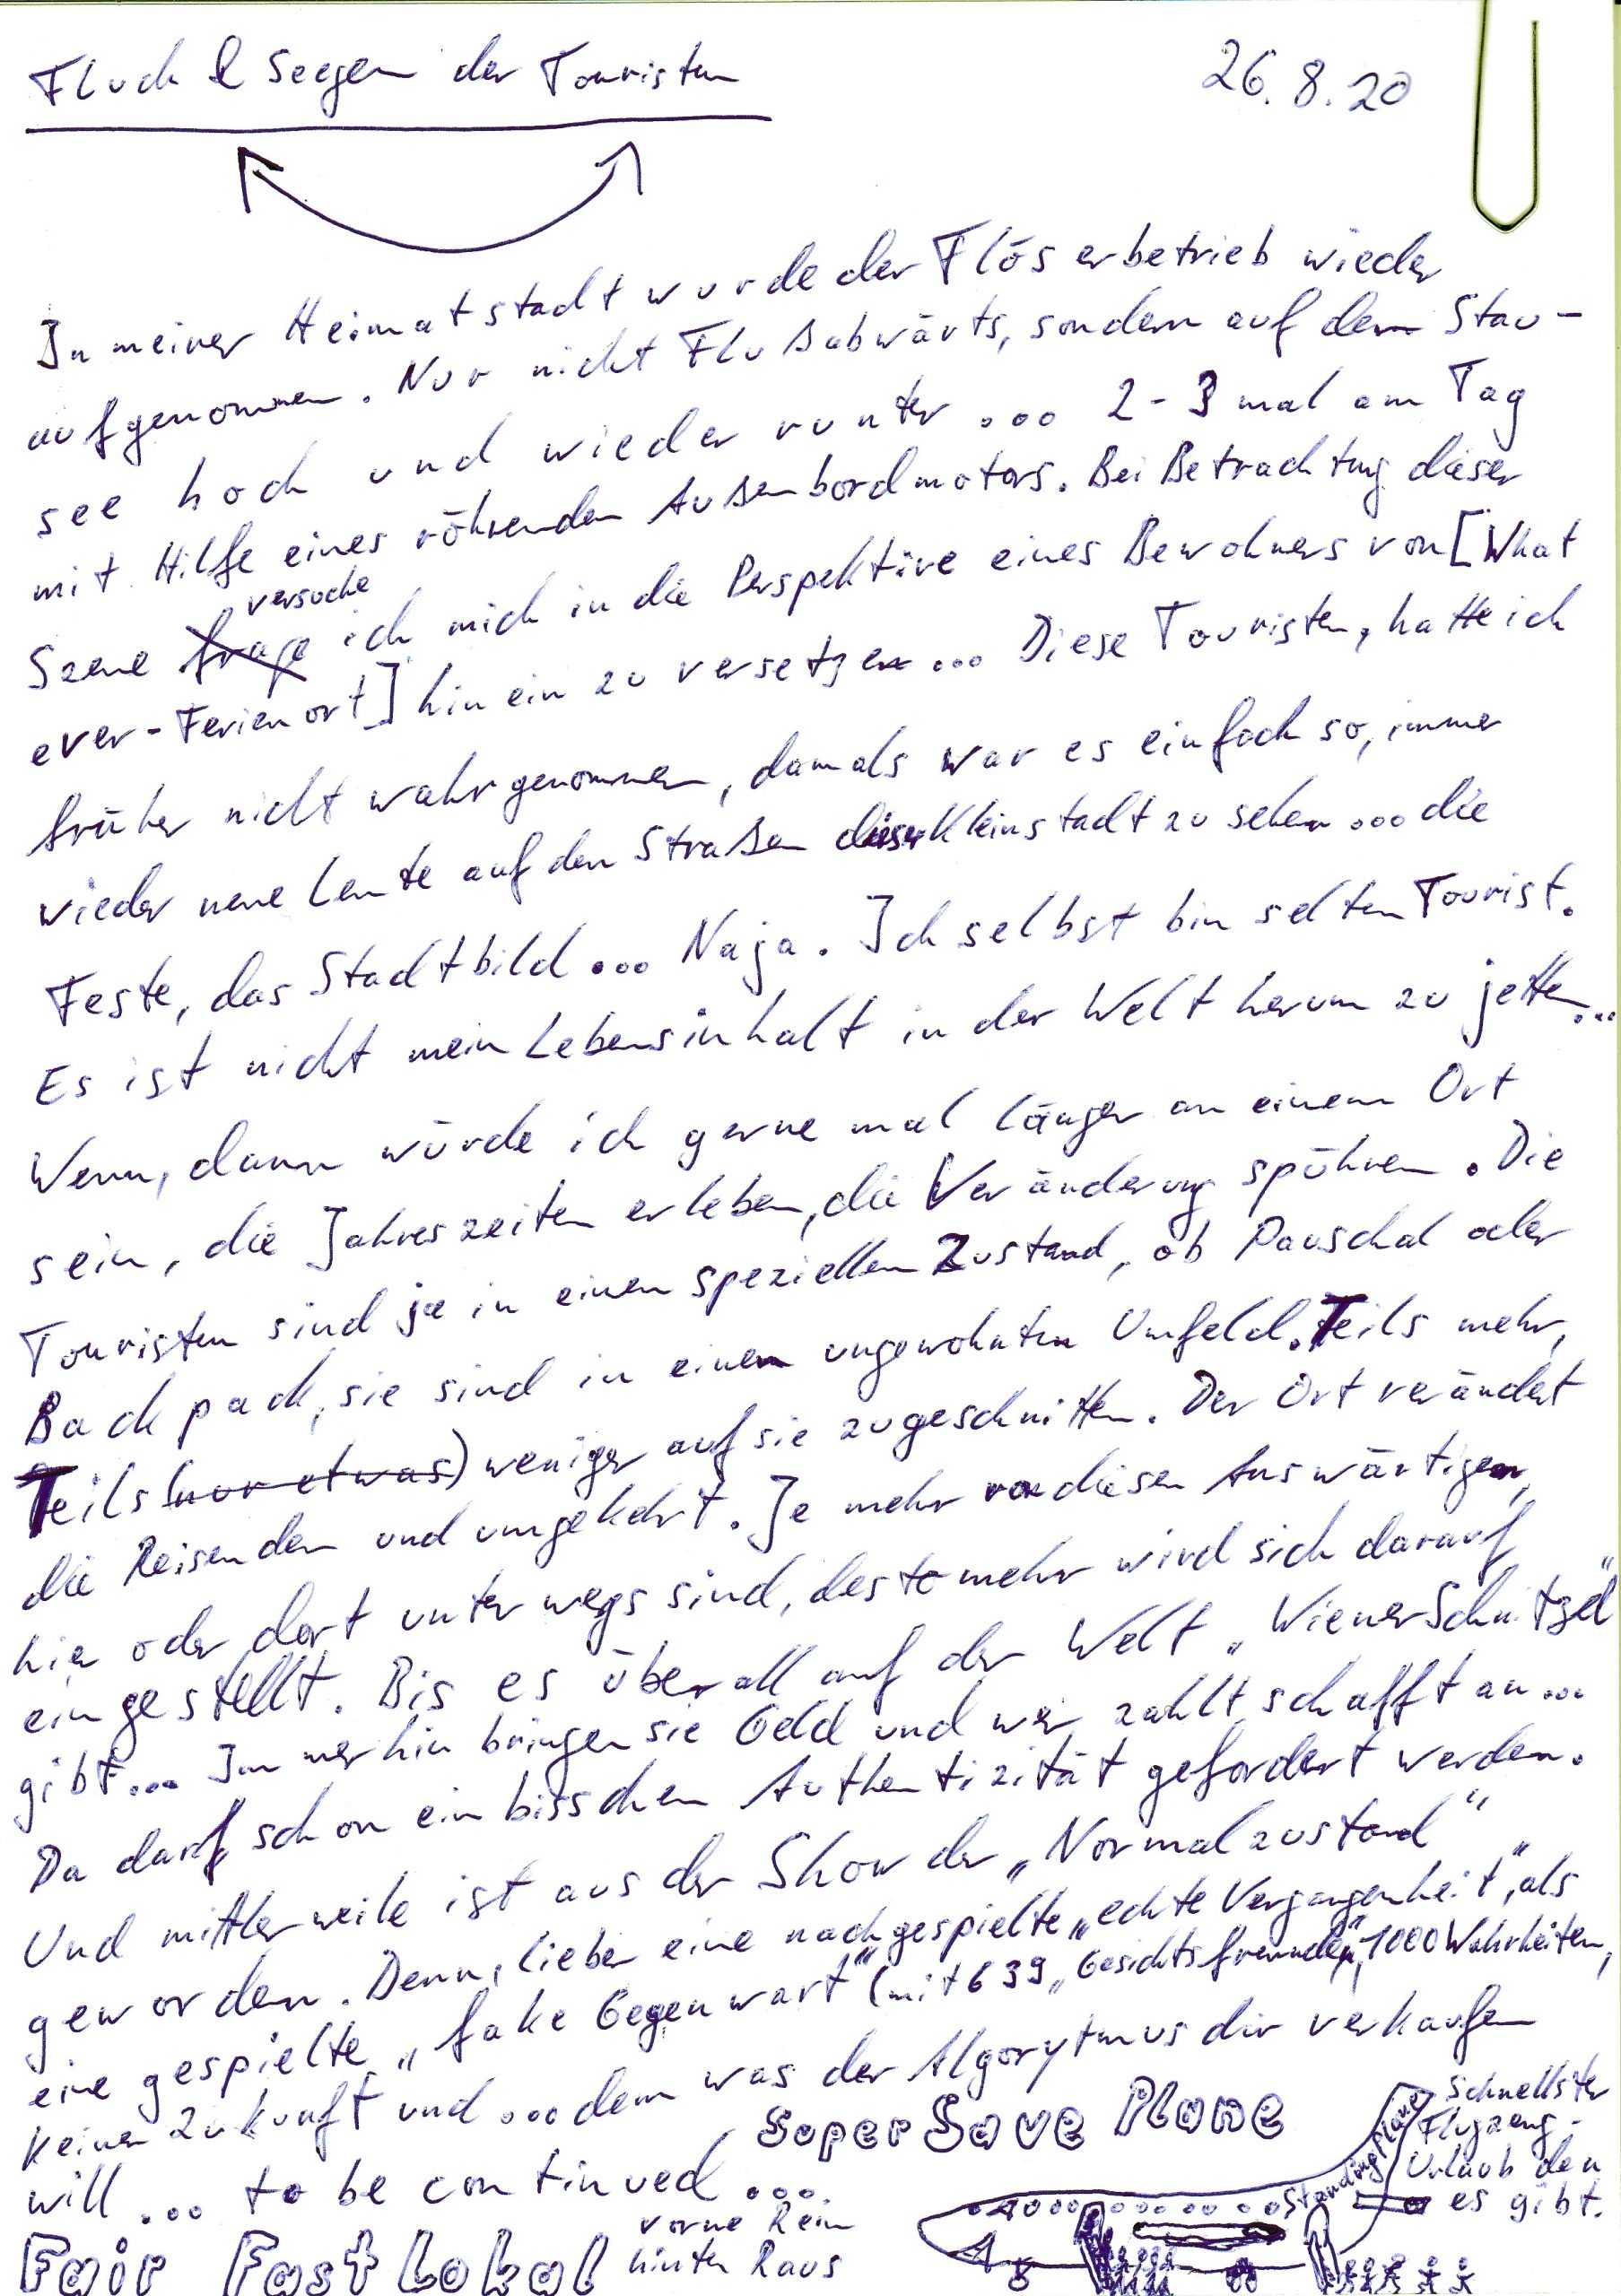 Fluch & Seegen der Touristen
26.8.20
In meiner Heimatstadt wurde der Flöserbetrieb wieder
aufgenommen. Nur nicht Flußabwärts, sondern auf dem Stau-
see hoch und wieder runter ... 2-3 mal am Tag
mit Hilfe eines röhrenden Außenbordmotors. Bei Betrachtung dieser
versuche
Szene frage ich mich in die Perspektive eines Bewohners von [What
ever-Ferienort] hinein zu versetzen ... Diese Touristen, hatte ich
früher nicht wahrgenommen, damals war es einfach so, immer
wieder neue Leute auf den Straßen dieser Kleinstadt zu sehen ... die
Feste, das Stadtbild ... Naja. Ich selbst bin selten Tourist.
Es ist nicht mein Lebensinhalt in der Welt herum zu jetten...
Wenn, dann würde ich gerne mal länger an einem Ort
sein, die Jahreszeiten erleben, die Veränderung spühren. Die
Touristen sind ja in einen speziellen Zustand, ob Pauschal oder
Backpack, sie sind in einem ungewohnten Umfeld. Teils mehr,
Teils (nur etwas) weniger auf sie zugeschnitten. Der Ort verändert
die Reisenden und umgekehrt. Je mehr von diesen Auswärtigen,
hier oder dort unterwegs sind, desto mehr wird sich darauf
eingestellt. Bis es überall auf der Welt „Wiener Schnitzel"
gibt... Immerhin bringen sie Geld und wer zahlt, schafft an...
Da darf schon ein bisschen Authentizität gefordert werden.
Und mittlerweile ist aus der Show der „Normalzustand"
geworden. Denn, lieber eine nachgespielte „echte Vergangenheit", als
eine gespielte „fake Gegenwart" (mit 639 „Gesichtsfreunden", 1000 Wahrheiten,
keiner Zukunft und ... dem was der Algorytmus dir verkaufen
will ... to be continued ....
Super Save Plane
Standing Plane
schnellster
Flugzeug-
Urlaub den
es gibt.
Fair Fast Lokal
vorne Rein
hinten Raus